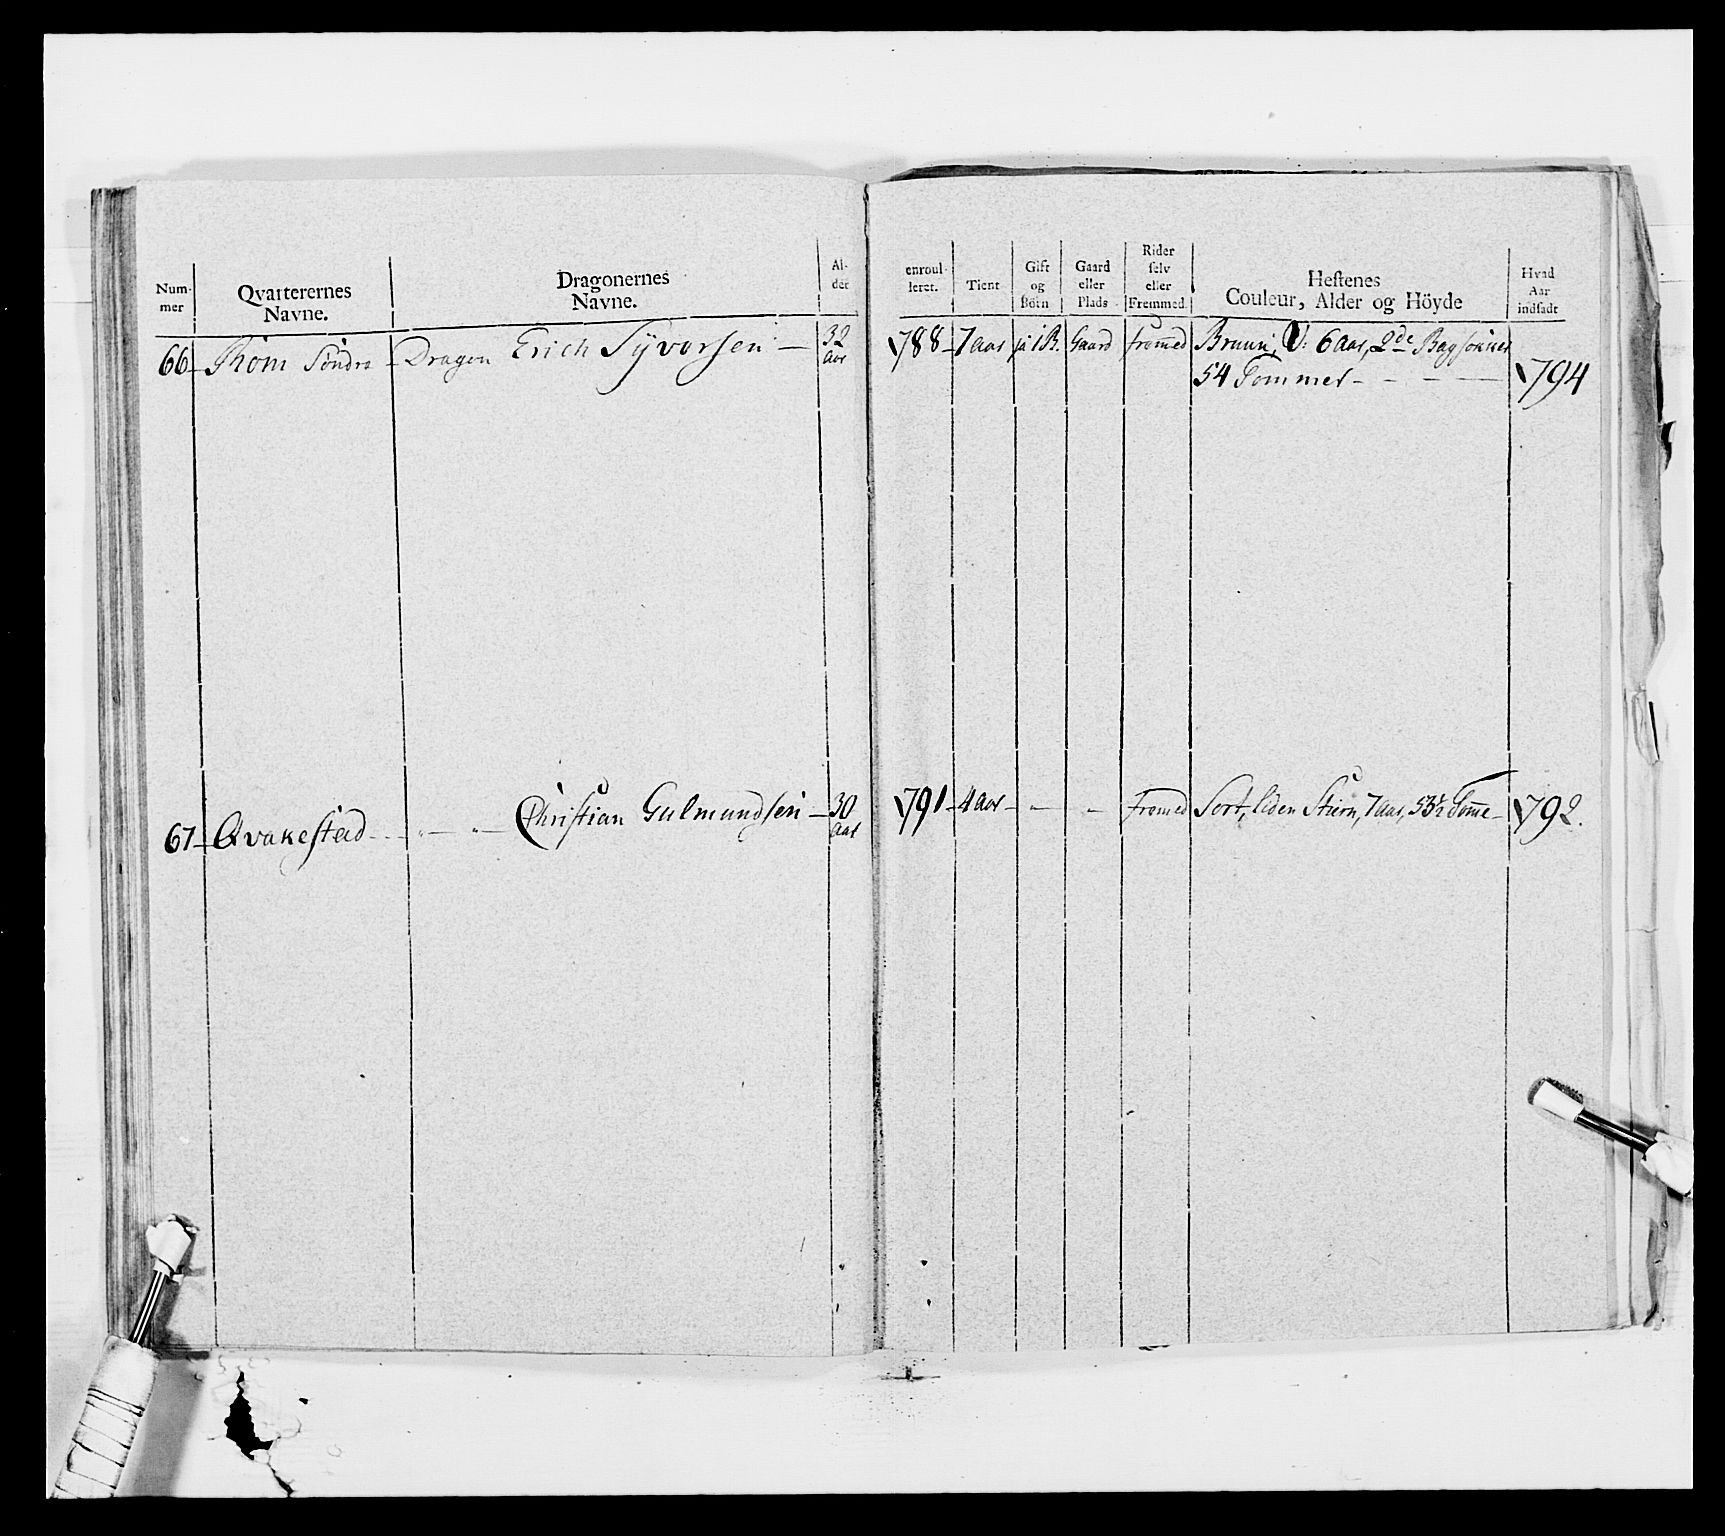 Num-
mer
Qvarterernes
Navne.
Dragonernes
Navne.
Al-
der
enroul-
leret.
Tient
Gift
og
Börn
Gaard
eller
Plads
Rider
selv
eller
Fremmed.
Hestenes
Couleur, Alder og Höyde
Hvad
Aar
indsadt
66 Röm Söndre Dragon Erich Syversen 32 aar 788 7 aar 1 B. Gaard fremed Bruun, 6 aar, 2de Bagsokker
54 Tommer 794
67 Qvakestad Christian Gulmundsen 30 aar 791 4 aar fremed Sort, liden Stiern, 7 aar, 53½ Tome 792.